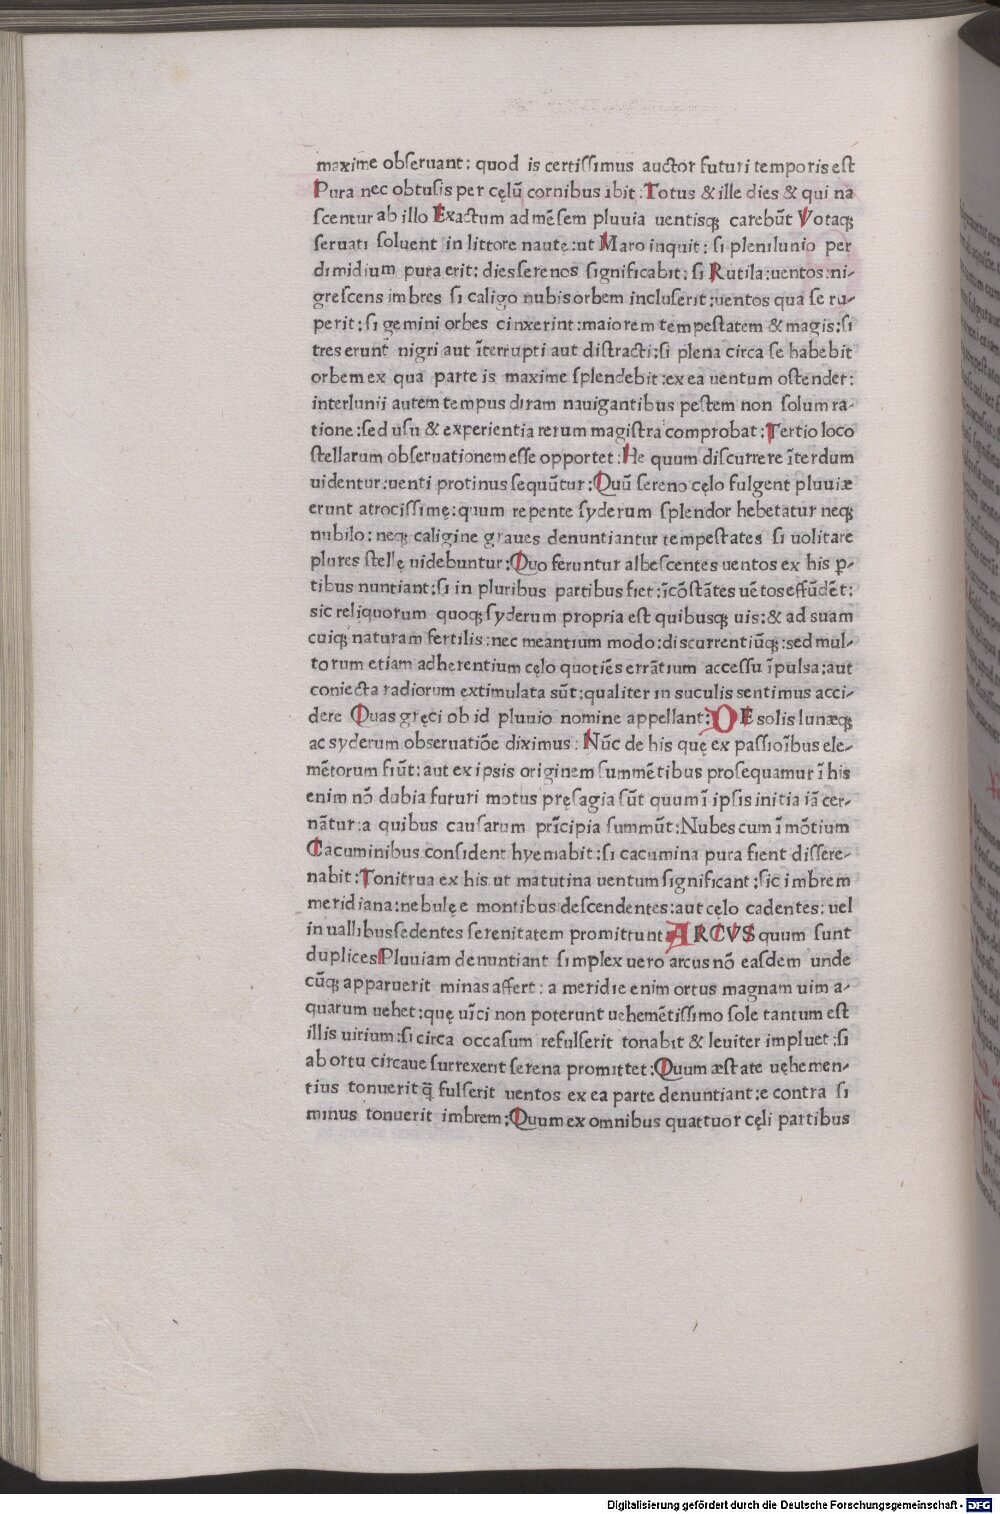 maxime obſeruant: quod is certiſſimus auctor futuri temporis eſt
Pura nec obtuſis per cęlū cornibus ibit: Totus & ille dies & qui na
ſcentur ab illo Exactum ad mēſem pluuia uentisqꝫ carebūt Votaqꝫ
ſeruati ſoluent in littore nautę: ut Maro inquit: ſi plenilunio per
dimidium pura erit: dies ſerenos ſignificabit: ſi Rutila: uentos: ni-
greſcens imbres ſi caligo nubis orbem incluſerit: uentos qua ſe ru-
perit: ſi gemini orbes cinxerint: maiorem tempeſtatem & magis: ſi
tres erunt nigri aut īterrupti aut diſtracti: ſi plena circa ſe habebit
orbem ex qua parte is maxime ſplendebit: ex ea uentum oſtendet:
interlunii autem tempus diram nauigantibus peſtem non ſolum ra-
tione: ſed uſu & experientia rerum magiſtra comprobat: Tertio loco
ſtellarum obſeruationem eſſe opportet: He quum diſcurrere īterdum
uidentur: uenti protinus ſequūtur: Quū ſereno cęlo fulgent pluuiæ
erunt atrociſſimę: quum repente ſyderum ſplendor hebetatur neqꝫ
nubilo: neqꝫ caligine graues denuntiantur tempeſtates ſi uolitare
plures ſtellę uidebuntur: Quo feruntur albeſcentes uentos ex his ꝑ-
tibus nuntiant: ſi in pluribus partibus fiet: īcōſtātes uētos effūdēt:
sic reliquorum quoqꝫ ſyderum propria eſt quibusqꝫ uis: & ad suam
cuiqꝫ naturam fertilis: nec meantium modo: diſcurrentiūqꝫ: sed mul-
torum etiam adherentium cęlo quotiēs errātium acceſſu īpulsa: aut
coniecta radiorum extimulata sūt: qualiter in suculis sentimus acci-
dere Quas gręci ob id pluuio nomine appellant: DE solis lunæqꝫ
ac syderum obseruatiōe diximus: Nūc de his quę ex paſſioībus ele-
mētorum fiūt: aut ex ipsis originem summētibus proſequamur ī his
enim nō dubia futuri motus pręſagia ſūt quum ī ipſis initia iā cer-
nātur: a quibus cauſarum prīcipia ſummūt: Nubes cum ī mōtium
Cacuminibus conſident hyemabit: ſi cacumina pura fient diſſere-
nabit: Tonitrua ex his ut matutina uentum ſignificant: ſic imbrem
meridiana: nebulę e montibus deſcendentes: aut cęlo cadentes: uel
in uallibus ſedentes ſerenitatem promittunt ARCVS quum ſunt
duplices Pluuiam denuntiant ſimplex uero arcus nō easdem unde
cūqꝫ apparuerit minas affert: a meridie enim ortus magnam uim a-
quarum uehet: quę uīci non poterunt uehemētiſſimo sole tantum eſt
illis uirium: ſi circa occaſum refulſerit tonabit & leuiter impluet: ſi
ab ortu circaue ſurrexerit ſerena promittet: Quum æſtate uęhemen-
tius tonuerit q̄ fulſerit uentos ex ea parte denuntiant: e contra ſi
minus tonuerit imbrem: Quum ex omnibus quattuor cęli partibus
Digitalisierung gefördert durch die Deutsche Forschungsgemeinschaft - DFG